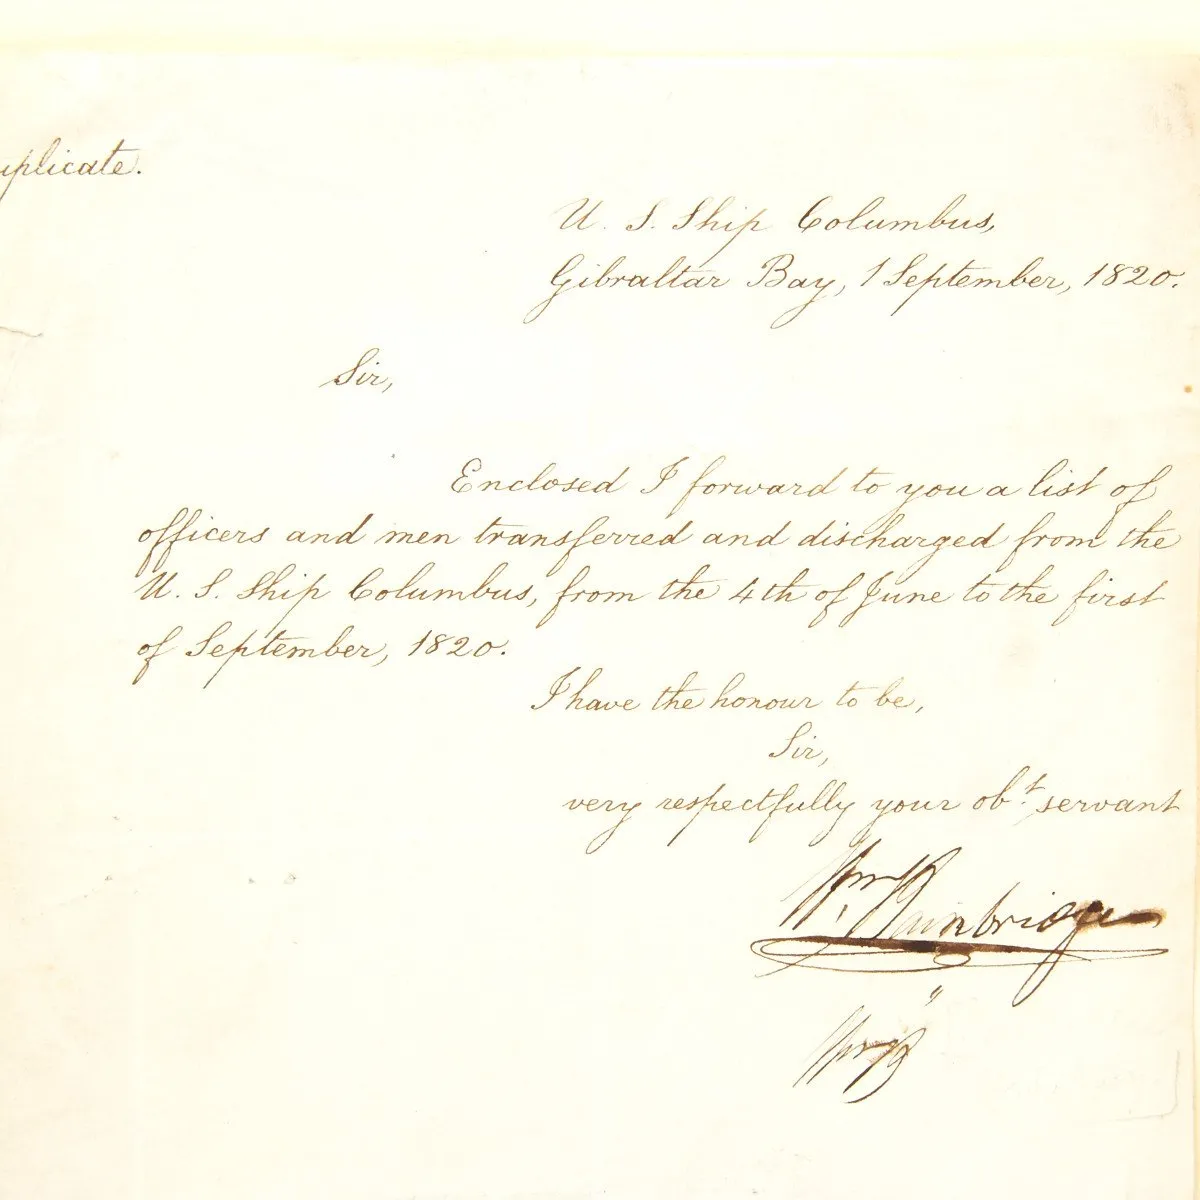 uplicate.
U. S. Ship Columbus,
Gibraltar Bay, 1 September, 1820.
Sir,
Enclosed I forward to you a list of
officers and men transferred and discharged from the
U. S. Ship Columbus, from the 4th of June to the first
of September, 1820.
I have the honour to be,
Sir,
very respectfully your obt. servant
Wm. Bainbridge